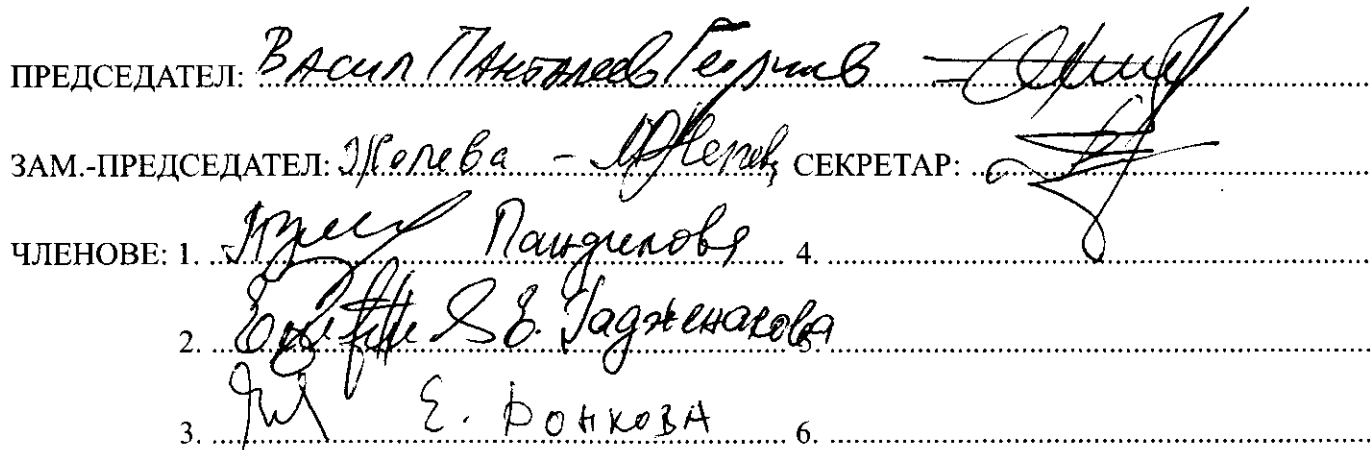 ПРЕДСЕДАТЕЛ: Васил Панталеев Георгиев
ЗАМ.-ПРЕДСЕДАТЕЛ: Желева - СЕКРЕТАР:
ЧЛЕНОВЕ: 1. Пандилова 4.
2. Е. Гадженакова 5.
3. Е. БОНКОВА 6.